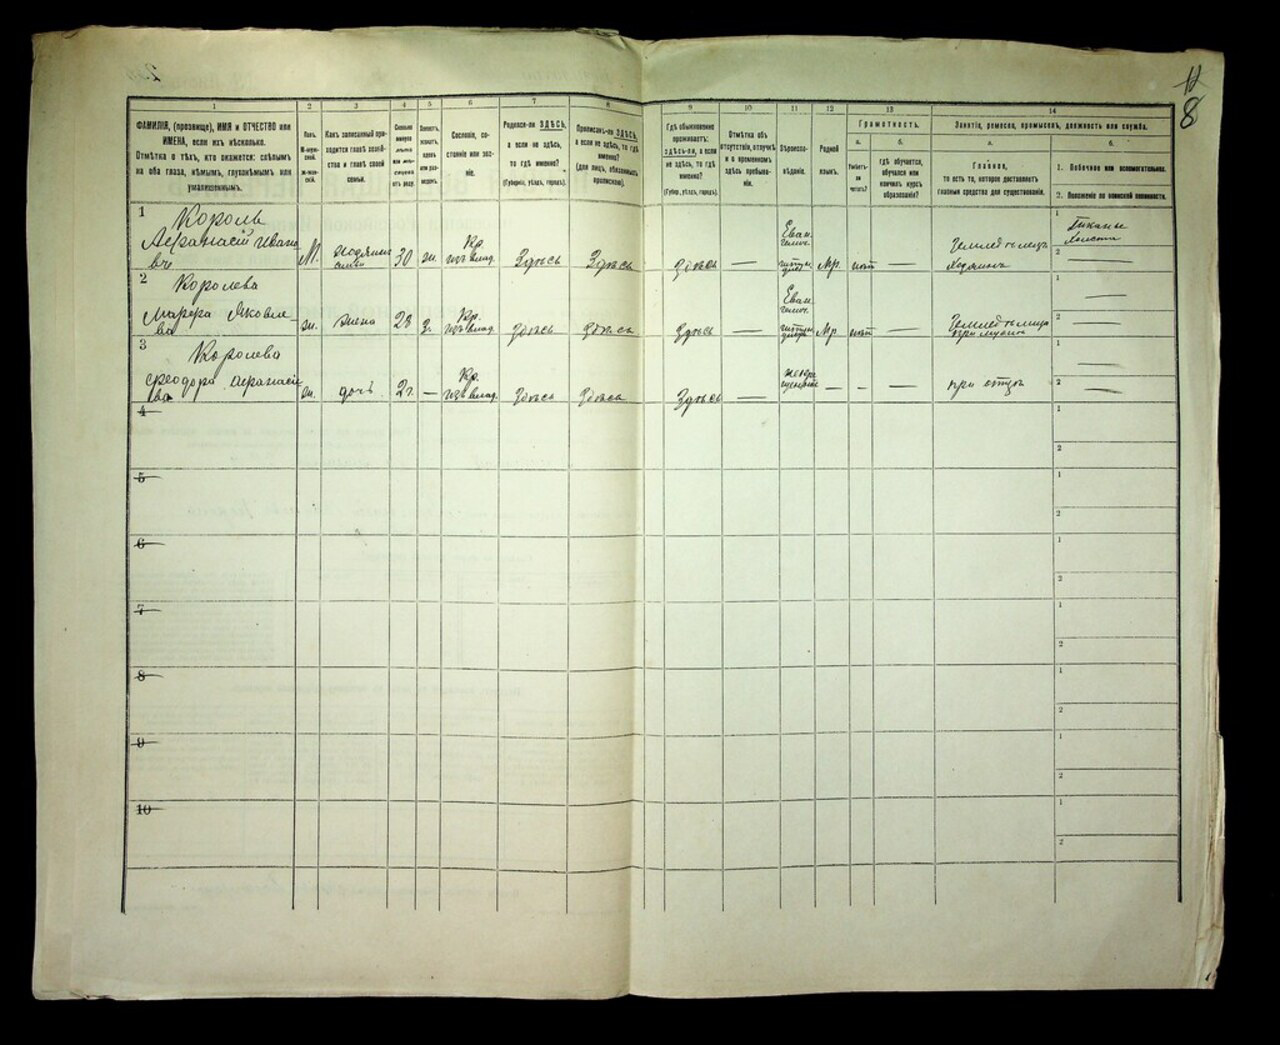 8
1 2 3 4 5. 6 7 8 9 10 11 12 13 14
ФАМИЛІЯ, (прозвище), ИМЯ и ОТЧЕСТВО или
ИМЕНА, если ихъ нѣсколько.
Отмѣтка о тѣхъ, кто окажется: слѣпымъ
на оба глаза, нѣмымъ, глухонѣмымъ или
умалишеннымъ.
Полъ.
М-мужской.
Ж-женскій.
Какъ записанный при-
ходится главѣ хозяй-
ства и главѣ своей
семьи.
Сколько
минуло
лѣтъ
или мѣ-
сяцевъ
отъ роду.
Холостъ,
женатъ,
вдовъ
или раз-
веденъ.
Сословіе, со-
стояніе или зва-
ніе.
Родился-ли ЗДѢСЬ,
а если не здѣсь,
то гдѣ именно?
(Губернія, уѣздъ, городъ).
Приписанъ-ли ЗДѢСЬ,
а если не здѣсь, то гдѣ
именно?
(для лицъ, обязанныхъ
припискою).
Гдѣ обыкновенно
проживаетъ:
здѣсь-ли, а если
не здѣсь, то гдѣ
именно?
(Губер., уѣздъ, городъ).
Отмѣтка объ
отсутствіи, отлучкѣ
и о временномъ
здѣсь пребыва-
ніи.
Вѣроиспо-
вѣданіе.
Родной
языкъ.
Грамотность.
а.
Умѣетъ-
ли
читать?
б.
гдѣ обучается,
обучался или
кончилъ курсъ
образованія?
Занятіе, ремесло, промыселъ, должность или служба.
а.
Главное,
то есть то, которое доставляетъ
главныя средства для существованія.
б.
1. Побочное или вспомогательное.
2. Положеніе по воинской повинности.
1 Король
Аѳанасій Ивано
вч М. хозяинъ 30 ж. Кр. изъ влад. Здѣсь Здѣсь Здѣсь — Еван. Мр. нѣтъ — Земледѣлецъ хозяинъ 1 Тканье холста
2 —
2 Королева
Марѳа Яковле-
ва ж. жена 28 з. Кр. изъ влад. Здѣсь Здѣсь Здѣсь — Еван. Мр нѣтъ — Земледѣлица при мужѣ 1 —
2 —
3 Королева
Ѳеодора Аѳанасіе
ва ж. дочь 2 г. — Кр. изъ влад. Здѣсь Здѣсь Здѣсь — — — — при отцѣ 1 —
2 —
4 1
2
5 1
2
6 1
2
7 1
2
8 1
2
9 1
2
10 1
2